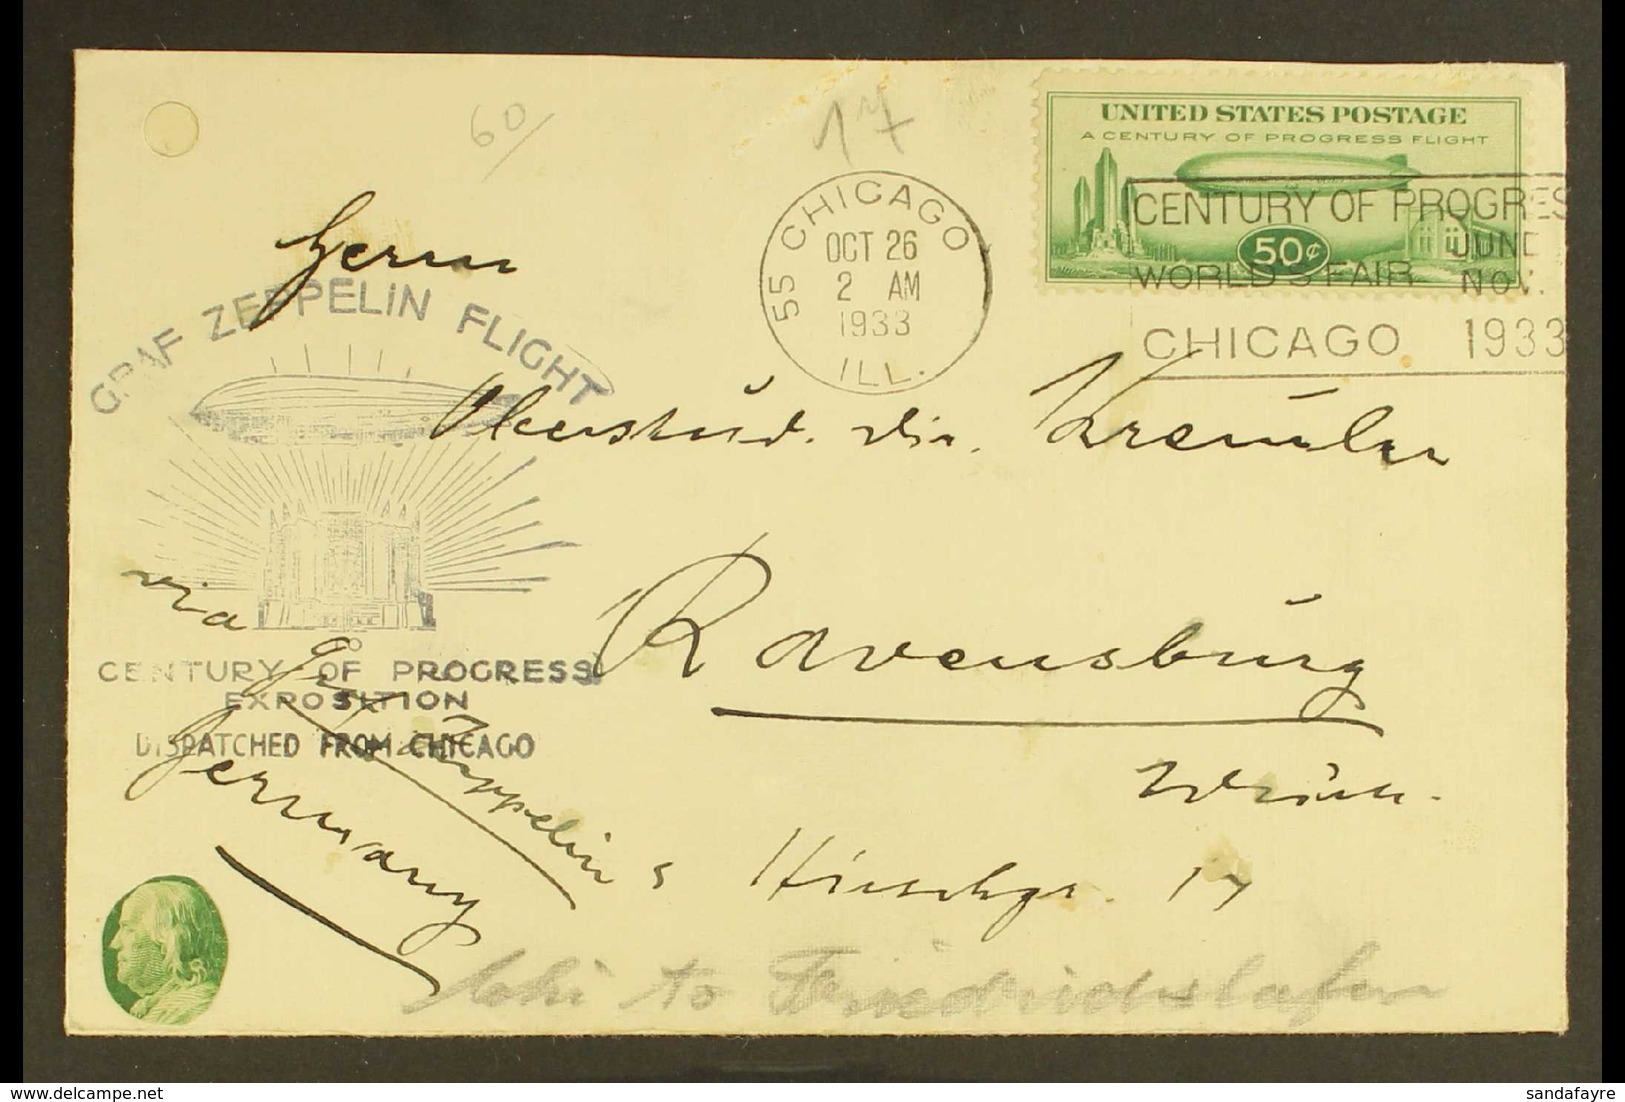 60/
17
UNITED STATES POSTAGE
A CENTURY OF PROGRESS FLIGHT
50¢
55 CHICAGO
OCT 26
2 AM
1933
ILL.
CENTURY OF PROGRES
JUNE
WORLD'S FAIR NOV.
CHICAGO 1933
Herrn
GRAF ZEPPELIN FLIGHT
Oberstud. Dir.
Ravensburg
Hirschgr. 17
via Graf Zeppelin
Germany
CENTURY OF PROGRESS
EXPOSITION
DISPATCHED FROM CHICAGO
Chi to Friedrichshafen
sandafayre